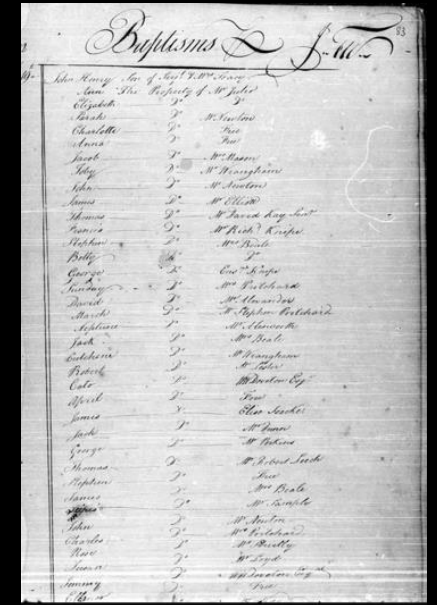 Baptisms &c 83
John Henry Son of Serjt & Mrs Tracy
Ann The Property of Mr Julio
Elizabeth Do Do
Sarah Do Mr Newton
Charlotte Do Free
Anna Do Free
Jacob Do Mrs Mason
Toby Do Mr Wrangham
John Do Mr Newton
James Do Mr Elliott
Thomas Do Mr David Kay Senr
Francis Do Mr Richd Knipe
Stephen Do Mrs Beale
Betty Do Do
George Do Ensn Knipe
Sunday Do Mrs Pritchard
David Do Mr Alexander
March Do Mr Stephen Pritchard
Neptune Do Mr Alexander
Jack Do Mrs Beale
Do Mr Wrangham
Robert Do Mr Lester
Cato Do Wm Doveton Esqr
April Do Free
James Do
Jack Do Mr Dunn
George Do Mr Perkins
Thomas Do Mr Robert Leech
Stephen Do Free
James Do Mrs Beale
Do Mr
John Do Mr Newton
Charles Do Mrs Pritchard
Rose Do Mr
Susan Do Mr Loyd
Tommy Do Wm Doveton Esqr
Do Free